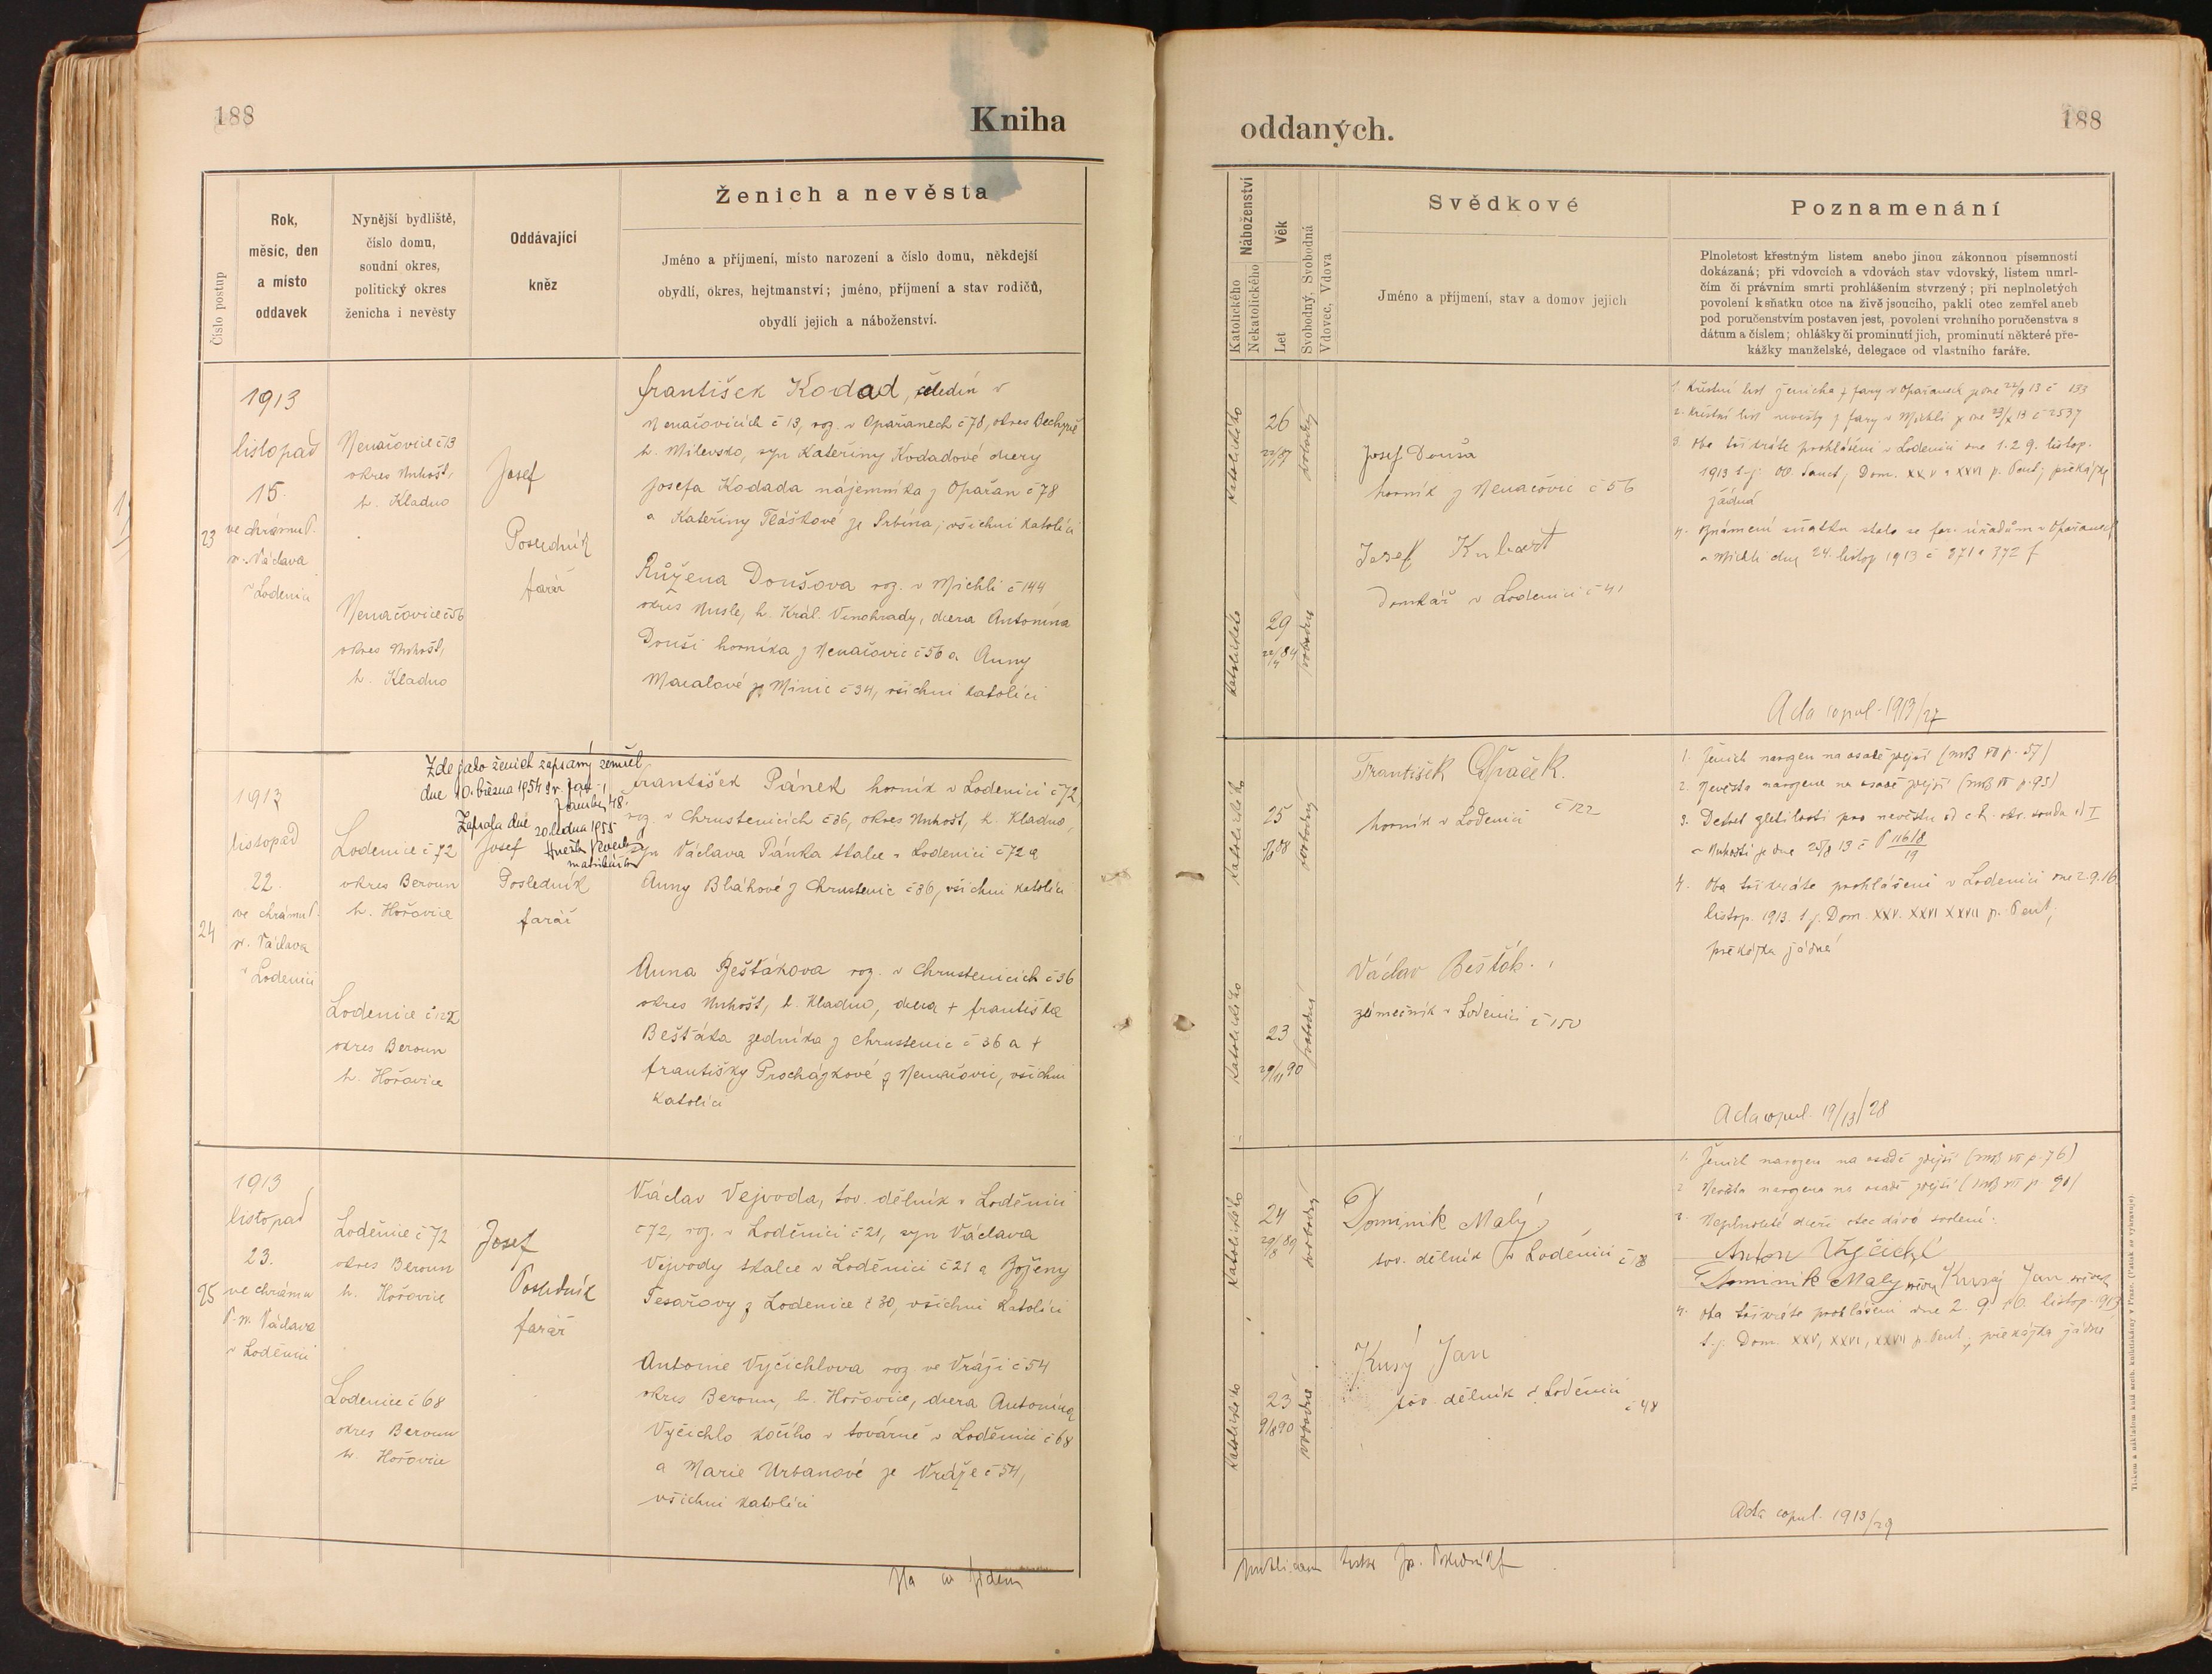 188
Kniha
Číslo postup
Rok,
měsíc, den
a místo
oddavek
Nynější bydliště,
číslo domu,
soudní okres,
politický okres
ženicha i nevěsty
Oddávající
kněz
Ženich a nevěsta
Jméno a příjmení, místo narození a číslo domu, někdejší
obydlí, okres, hejtmanství; jméno, příjmení a stav rodičů,
obydlí jejich a náboženství.
23
1913
listopad
15.
ve chrámu P.
sv. Václava
v Lodenici
Nenačovice č 13
okres Unhošť,
h. Kladno
Nenačovice č 56
okres Unhošť,
h. Kladno
Josef
Posledník
farář
František Kodad, čeledín v
Nenačovicích č 13, roz. v Opařanech č 78, okres Bechyně
h. Milevsko, syn Kateřiny Kodadové dcery
Josefa Kodada nájemníka z Opařan č 78
a Kateřiny ze Srbína; všichni katolíci
Růžena Doušova roz. v Michli č 144
okres Nusle, h. Král. Vinohrady, dcera Antonína
Douši horníka z Nenačovic č 56 a Anny
Macalové z Minic č 34, všichni katolíci
Zde jako ženich zapsaný zemřel
dne 10. března 1954
Zapsala dne 20. ledna 1955
matrikářka
24
1913
listopad
22.
ve chrámu P.
sv. Václava
v Lodenici
Lodenice č 72
okres Beroun
h. Hořovice
Lodenice č 122
okres Beroun
h. Hořovice
Josef
Posledník
farář
František Pánek horník v Lodenici č 72,
roz. v Chrustenicích č 36, okres Unhošť, h. Kladno,
syn Václava Pánka skalce v Lodenici č 72 a
Anny Bláhové z Chrustenic č 36, všichni katolíci
Anna Bešťákova roz. v Chrustenicích č 36
okres Unhošť, h. Kladno, dcera + Františka
Bešťáka zedníka z Chrustenic č 36 a +
Františky Procházkové z Nenačovic, všichni
katolíci
25
1913
listopad
23.
ve chrámu
P. sv. Václava
v Loděnici
Loděnice č 72
okres Beroun
h. Hořovice
Lodenice č 68
okres Beroun
h. Hořovice
Josef
Posledník
farář
Václav Vejvoda, tov. dělník v Loděnici
č 72, roz. v Loděnici č 21, syn Václava
Vejvody skalce v Loděnici č 21 a Boženy
Tesařovy z Lodenice č 30, všichni katolíci
Antonie Vyčichlova roz ve Vráži č 54
okres Beroun, h. Hořovice, dcera Antonína
Vyčichlo kočího v továrně v Loděnici č 68
a Marie Urbanové ze Vráže č 54,
všichni katolíci
Ita in fidem
oddaných.
188
Náboženství
Katolického
Nekatolického
Věk
Let
Svobodný, Svobodná
Vdovec, Vdova
Svědkové
Jméno a příjmení, stav a domov jejich
Poznamenání
Plnoletost křestným listem anebo jinou zákonnou písemností
dokázaná; při vdovcích a vdovách stav vdovský, listem umrl-
čím či právním smrti prohlášením stvrzený; při neplnoletých
povolení k sňatku otce na živě jsoucího, pakli otec zemřel aneb
pod poručenstvím postaven jest, povolení vrchního poručenstva s
dátum a číslem; ohlášky či prominutí jich, prominutí některé pře-
kážky manželské, delegace od vlastního faráře.
katolického
26
svobodný
katolického
29
svobodná
Josef Douša
horník z Nenačovic č 56
Josef Kubart
domkář v Lodenici č 41
1. Křestní list ženicha z fary v Opařanech ze dne 22/9 13 č 133
2. Křestní list nevěsty z fary v Michli z dne 23/X 13 č 2537
3. Oba třikráte prohlášeni v Lodenici dne 1. 2 9. listop.
1913 t. j. OO Sanct, Dom. XXV a XXVI p. Pent; překážka
žádná
4. Oznámení sňatku stalo se far. úřadům v Opařanech
a Michli dne 24. listop 1913 č 371 a 372 f
Acta copul. 1913/27
katolického
25
svobodný
katolického
23
29/11 90
svobodná
František Spaček.
horník v Lodenici č 122
Václav Bešťák.
zámečník v Lodenici č 150
1. Ženich narozen na osadě zdejší (MB VII p. 57)
2. Nevěsta narozena na osadě zdejší (MB VII p. 95)
3. Dekret zletilosti pro nevěstu od c. k. okr. soudu
v Unhošti ze dne 13 č P 116/8 19
4. Oba třikráte prohlášeni v Lodenici dne 2. 9. 16
listop. 1913. t. j. Dom. XXV. XXVI XXVII p. Pent;
překážka žádná
Acta copul. 1913/28
katolického
24
29/8 89
svobodný
katolického
23
9/8 90
svobodná
Dominik Malý
tov. dělník v Loděnici č 18
Kusý Jan
tov. dělník v Loděnici č 48
1. Ženich narozen na osadě zdejší (MB VII p. 76)
2. Nevěsta narozena na osadě zdejší (MB VII p. 91)
3. Neplnoleté dceři otec dává svolení:
Anton Vyčichl
Dominik Malý svědek Kusý Jan svědek
4. Oba třikráte prohlášeni dne 2. 9. 16. listop. 1913
t. j. Dom. XXV, XXVI, XXVII p. Pent., překážka žádná
Acta copul. 1913/29
Jos. Posledník